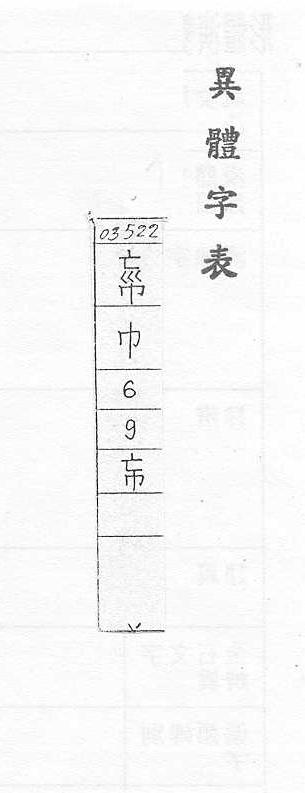 異體字表
03522
巾
6
9